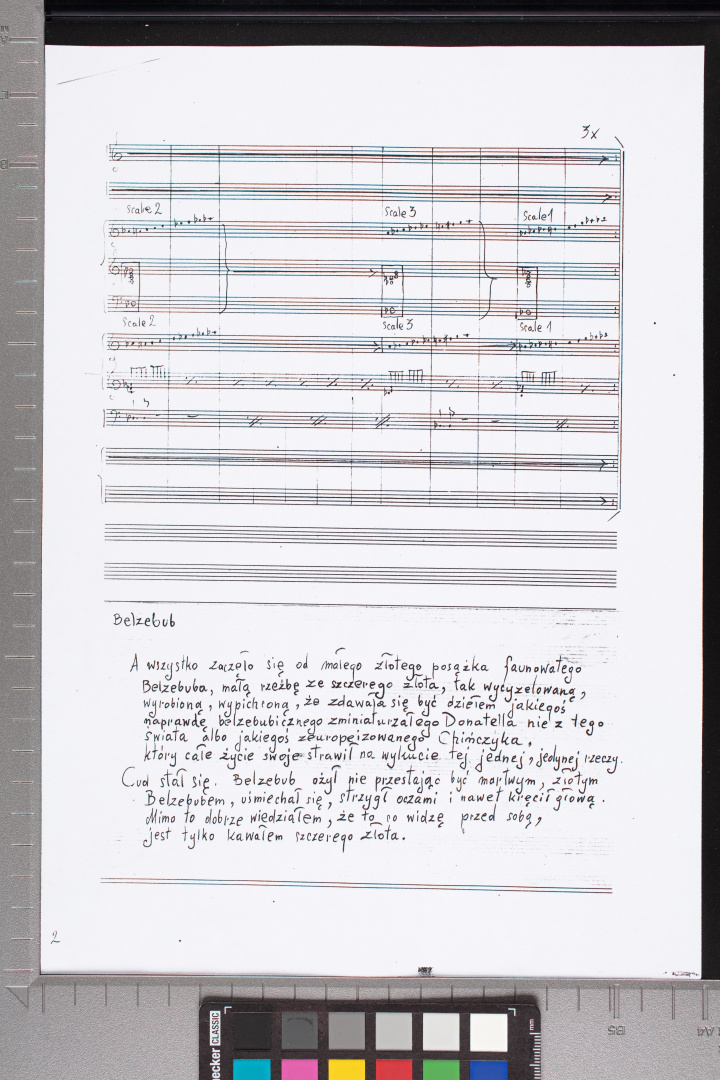 3x
Scale 2
Scale 3
Scale 1
Scale 2
Scale 3
Scale 1
Belzebub
A wszystko zaczęło się od małego złotego posążka faunowatego
Belzebuba, małą rzeźbę ze szczerego złota, tak wycyzelowaną,
wyrobioną, wypichconą, że zdawała się być dziełem jakiegoś
naprawdę belzebubicznego zminiaturzałego Donatella nie z tego
świata albo jakiegoś zeuropeizowanego Chińczyka,
który całe życie swoje strawił na wykucie tej jednej, jedynej rzeczy.
Cud stał się. Belzebub ożył nie przestając być martwym, złotym
Belzebubem, uśmiechał się, strzygł oczami i nawet kręcił głową.
Mimo to dobrze wiedziałem, że to co widzę przed sobą,
jest tylko kawałem szczerego złota.
2
CLASSIC
mm
B5
A4